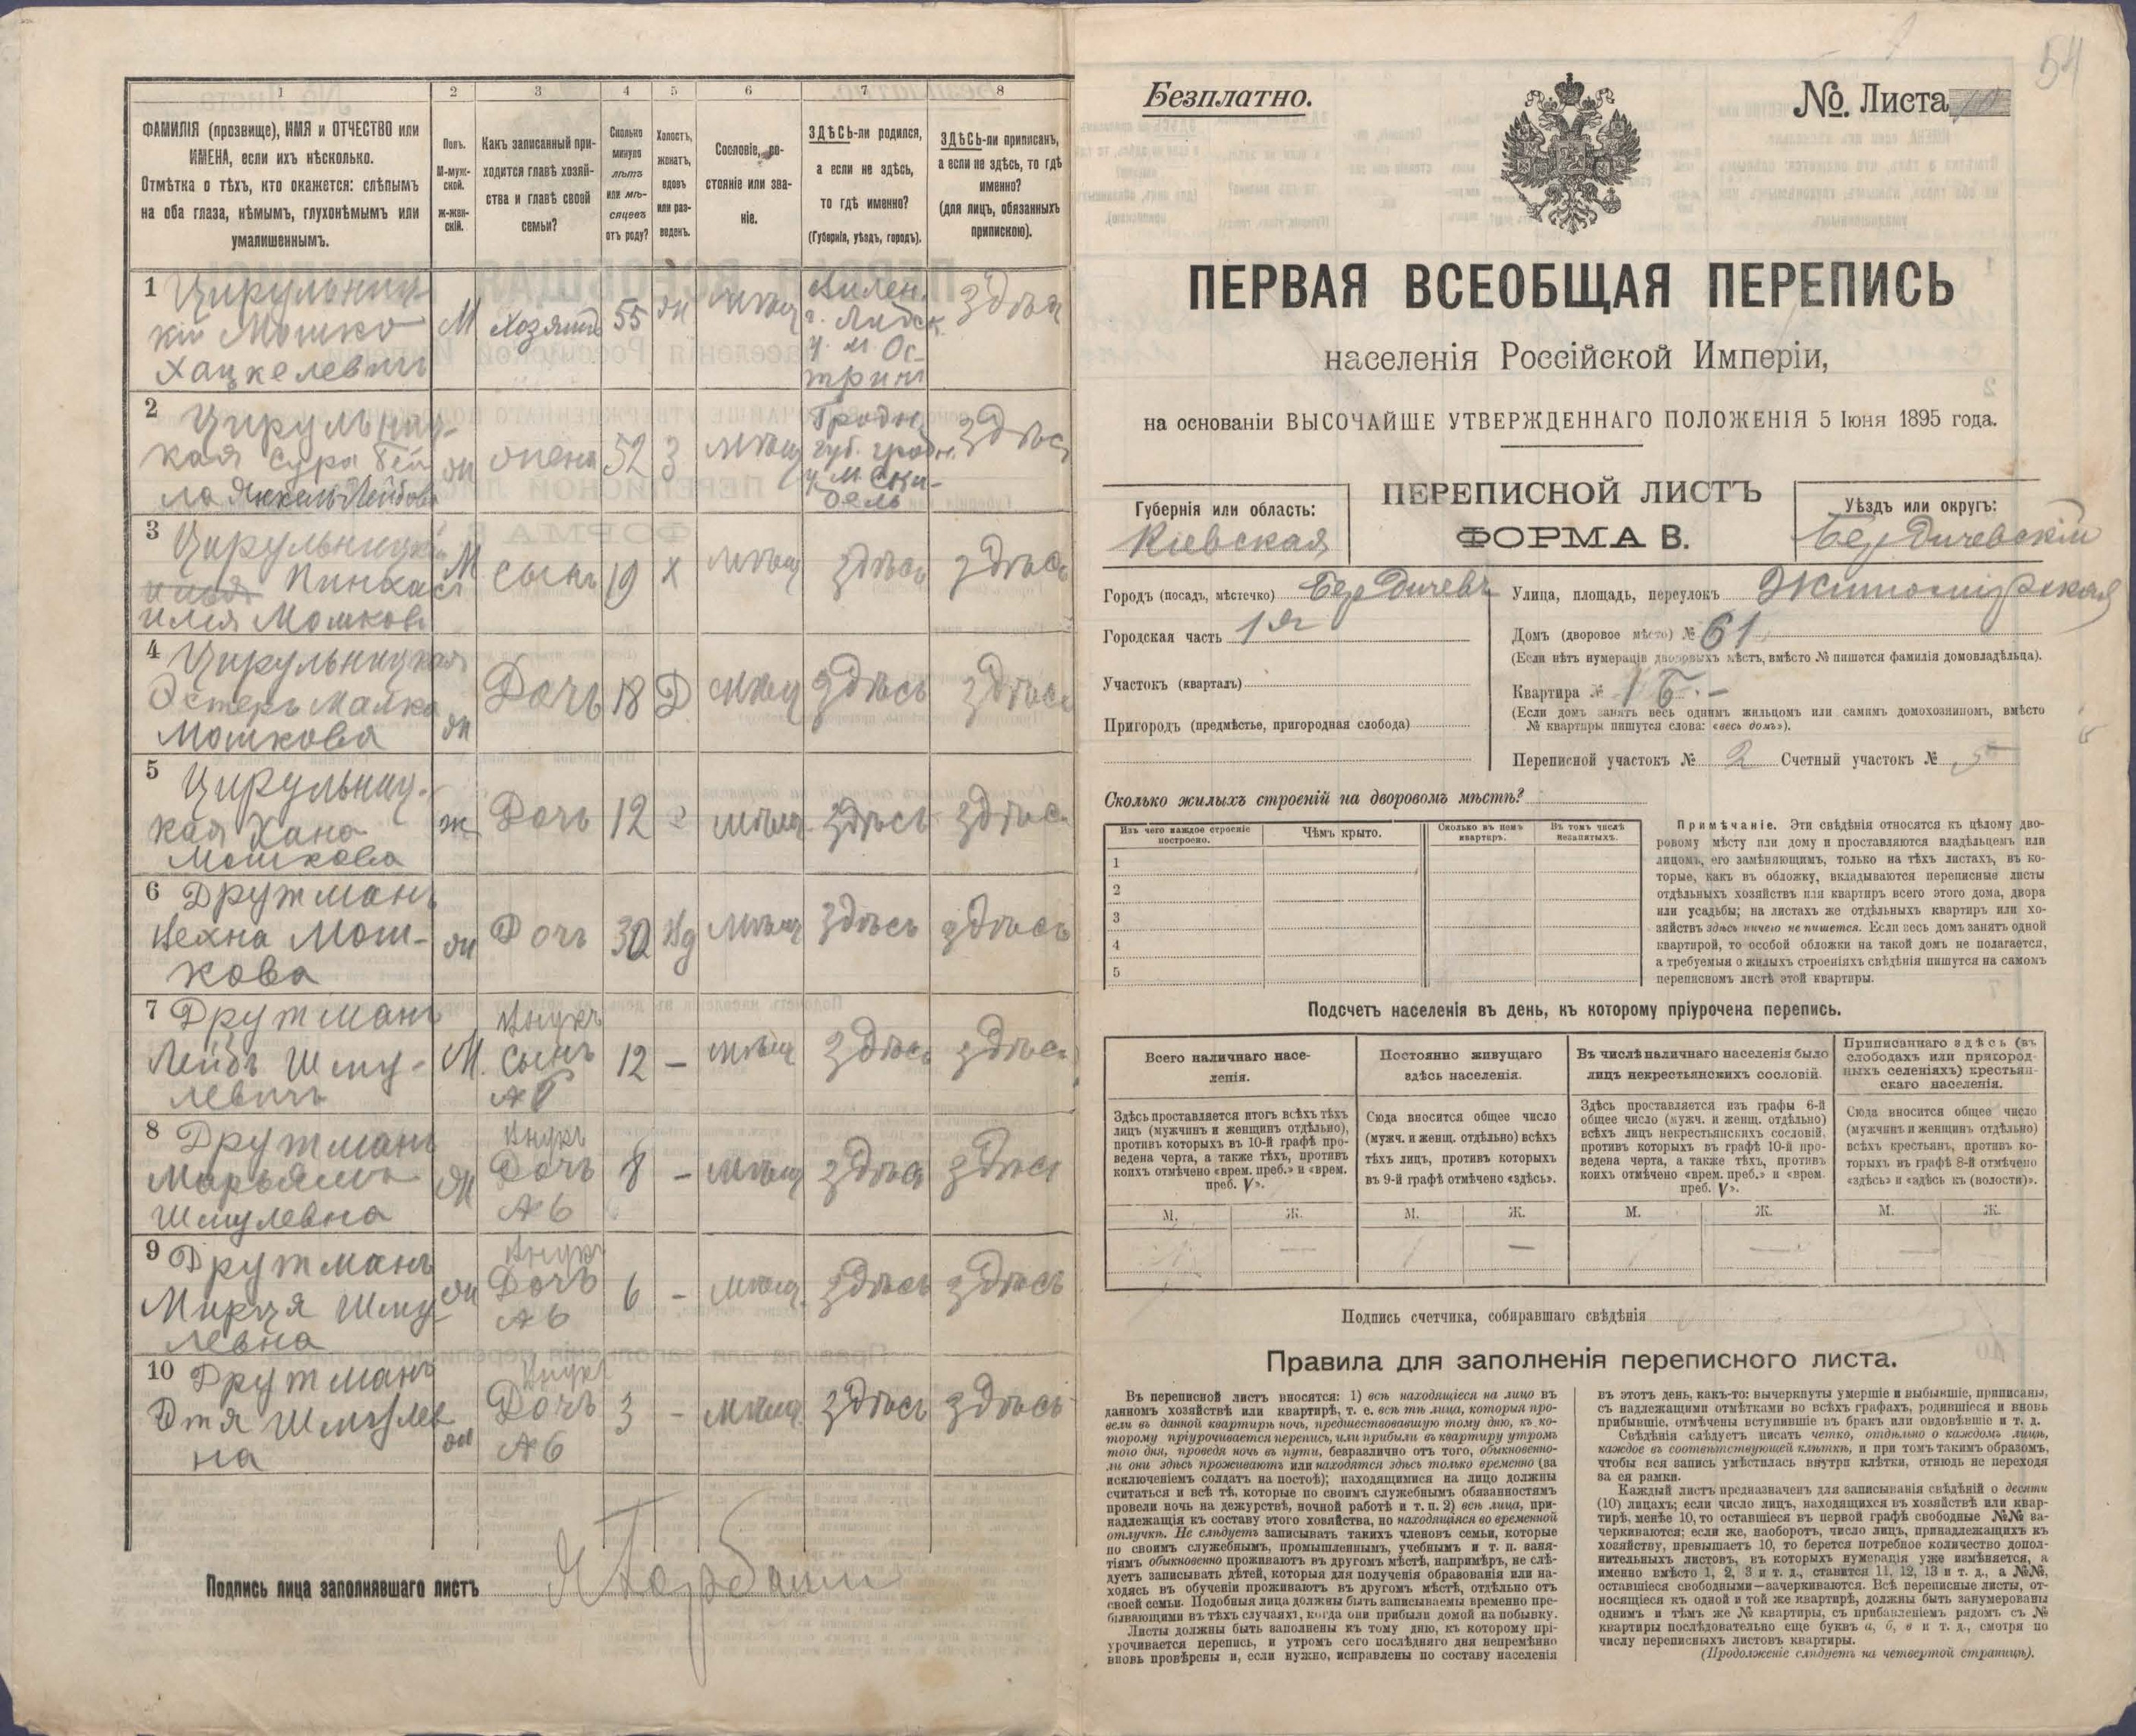 1
2
3
4
5
6
7
8
ФАМИЛІЯ (прозвище), ИМЯ и ОТЧЕСТВО или
ИМЕНА, если ихъ нѣсколько.
Отмѣтка о тѣхъ, кто окажется: слѣпымъ
на оба глаза, нѣмымъ, глухонѣмымъ или
умалишеннымъ.
Полъ.
М-муж-
ской.
Ж-жен-
скій.
Какъ записанный при-
ходится главѣ хозяй-
ства и главѣ своей
семьи?
Сколько
минуло
лѣтъ
или мѣ-
сяцевъ
отъ роду?
Холостъ,
женатъ,
вдовъ
или раз-
веденъ.
Сословіе, со-
стояніе или зва-
ніе.
ЗДѢСЬ-ли родился,
а если не здѣсь,
то гдѣ именно?
(Губернія, уѣздъ, городъ).
ЗДѢСЬ-ли приписанъ,
а если не здѣсь, то гдѣ
именно?
(для лицъ, обязанныхъ
припискою).
1 Цирульниц-
кій Мошко
Хацкелевичъ
М
Хозяинъ
55
ж
мѣщ
Вилен.
г. Лидск.
у. м. Ос-
трин
здѣсь
2 Цирульниц-
кая Сура Бей
ла Янкель-Лейбова
ж
жена
52
З
мѣщ
Гродн.
губ. гродн.
у. м. Ски-
дель
здѣсь
3 Цирульницкій
Пинхас
Илья Мошков
М
сынъ
19
х
мѣщ
здѣсь
здѣсь
4 Цирульницкая
Эстеръ Малка
Мошкова
ж
Дочь
18
Д
мѣщ
здѣсь
здѣсь
5 Цирульниц-
кая Хана
Мошкова
ж
Дочь
12
мѣщ
здѣсь
здѣсь
6 Друтманъ
Нехна Мош-
кова
ж
Дочь
30
Вд
мѣщ
здѣсь
здѣсь
7 Друтманъ
Лейбъ Шму-
левичъ
М.
Внукъ
сынъ
А6
12
-
мѣщ
здѣсь
здѣсь
8 Друтманъ
Марьямъ
Шмулевна
ж
Внук
Дочь
А6
8
-
мѣщ
здѣсь
здѣсь
9 Друтманъ
Мирця Шму
левна
ж
Внук
Дочь
А6
6
-
мѣщ.
здѣсь
здѣсь
10 Друтманъ
Этя Шмулев
на
ж
Внук
Дочь
А6
3
-
мѣщ.
здѣсь
здѣсь
Подпись лица заполнявшаго листъ
54
Безплатно.
№ Листа 10
ПЕРВАЯ ВСЕОБЩАЯ ПЕРЕПИСЬ
населенія Россійской Имперіи,
на основаніи ВЫСОЧАЙШЕ УТВЕРЖДЕННАГО ПОЛОЖЕНІЯ 5 Іюня 1895 года.
Губернія или область:
Кіевская
ПЕРЕПИСНОЙ ЛИСТЪ
ФОРМА В.
Уѣздъ или округъ:
Бердичевскій
Городъ (посадъ, мѣстечко) Бердичевъ
Городская часть 1я
Участокъ (кварталъ)
Пригородъ (предмѣстье, пригородная слобода)
Улица, площадь, переулокъ Житомирская
Домъ (дворовое мѣсто) № 61
(Если нѣтъ нумераціи дворовыхъ мѣстъ, вмѣсто № пишется фамилія домовладѣльца).
Квартира № 1 Б. -
(Если домъ занятъ весь однимъ жильцомъ или самимъ домохозяиномъ, вмѣсто
№ квартиры пишутся слова: «весь домъ»).
Переписной участокъ № 2 Счетный участокъ № 5
Сколько жилыхъ строеній на дворовомъ мѣстѣ?
Изъ чего каждое строеніе
построено.
Чѣмъ крыто.
Сколько въ немъ
квартиръ.
Въ томъ числѣ
незанятыхъ.
1
2
3
4
5
Примѣчаніе. Эти свѣдѣнія относятся къ цѣлому дво-
ровому мѣсту или дому и проставляются владѣльцемъ или
лицомъ, его замѣняющимъ, только на тѣхъ листахъ, въ ко-
торые, какъ въ обложку, вкладываются переписные листы
отдѣльныхъ хозяйствъ или квартиръ всего этого дома, двора
или усадьбы; на листахъ же отдѣльныхъ квартиръ или хо-
зяйствъ здѣсь ничего не пишется. Если весь домъ занятъ одной
квартирой, то особой обложки на такой домъ не полагается,
а требуемыя о жилыхъ строеніяхъ свѣдѣнія пишутся на самомъ
переписномъ листѣ этой квартиры.
Подсчетъ населенія въ день, къ которому пріурочена перепись.
Всего наличнаго насе-
ленія.
Постоянно живущаго
здѣсь населенія.
Въ числѣ наличнаго населенія было
лицъ некрестьянскихъ сословій.
Приписаннаго здѣсь (въ
слободахъ или пригород-
ныхъ селеніяхъ) крестьян-
скаго населенія.
Здѣсь проставляется итогъ всѣхъ тѣхъ
лицъ (мужчинъ и женщинъ отдѣльно),
противъ которыхъ въ 10-й графѣ про-
ведена черта, а также тѣхъ, противъ
коихъ отмѣчено «врем. преб.» и «врем.
преб. V».
Сюда вносится общее число
(мужч. и женщ. отдѣльно) всѣхъ
тѣхъ лицъ, противъ которыхъ
въ 9-й графѣ отмѣчено «здѣсь».
Здѣсь проставляется изъ графы 6-й
общее число (мужч. и женщ. отдѣльно)
всѣхъ лицъ некрестьянскихъ сословій,
противъ которыхъ въ графѣ 10-й про-
ведена черта, а также тѣхъ, противъ
коихъ отмѣчено «врем. преб.» и «врем.
преб. V».
Сюда вносится общее число
(мужчинъ и женщинъ отдѣльно)
всѣхъ крестьянъ, противъ ко-
торыхъ въ графѣ 8-й отмѣчено
«здѣсь» и «здѣсь къ (волости)».
М. Ж. М. Ж. М. Ж. М. Ж.
Подпись счетчика, собиравшаго свѣдѣнія
Правила для заполненія переписного листа.
Въ переписной листъ вносятся: 1) всѣ находящіеся на лицо въ
данномъ хозяйствѣ или квартирѣ, т. е. всѣ тѣ лица, которыя про-
вели въ данной квартирѣ ночь, предшествовавшую тому дню, къ ко-
торому пріурочивается перепись, или прибыли въ квартиру утромъ
того дня, проведя ночь въ пути, безразлично отъ того, обыкновенно-
ли они здѣсь проживаютъ или находятся здѣсь только временно (за
исключеніемъ солдатъ на постоѣ); находящимися на лицо должны
считаться и всѣ тѣ, которые по своимъ служебнымъ обязанностямъ
провели ночь на дежурствѣ, ночной работѣ и т. п. 2) всѣ лица, при-
надлежащія къ составу этого хозяйства, но находящіяся во временной
отлучкѣ. Не слѣдуетъ записывать такихъ членовъ семьи, которые
по своимъ служебнымъ, промышленнымъ, учебнымъ и т. п. заня-
тіямъ обыкновенно проживаютъ въ другомъ мѣстѣ, напримѣръ, не слѣ-
дуетъ записывать дѣтей, которыя для полученія образованія или на-
ходясь въ обученіи проживаютъ въ другомъ мѣстѣ, отдѣльно отъ
своей семьи. Подобныя лица должны быть записываемы временно пре-
бывающими въ тѣхъ случаяхъ, когда они прибыли домой на побывку.
Листы должны быть заполнены къ тому дню, къ которому прі-
урочивается перепись, и утромъ сего послѣдняго дня непремѣнно
вновь провѣрены и, если нужно, исправлены по составу населенія
въ этотъ день, какъ-то: вычеркнуты умершіе и выбывшіе, приписаны,
съ надлежащими отмѣтками во всѣхъ графахъ, родившіеся и вновь
прибывшіе, отмѣчены вступившіе въ бракъ или овдовѣвшіе и т. д.
Свѣдѣнія слѣдуетъ писать четко, отдѣльно о каждомъ лицѣ,
каждое въ соотвѣтствующей клѣткѣ, и при томъ такимъ образомъ,
чтобы вся запись умѣстилась внутри клѣтки, отнюдь не переходя
за ея рамки.
Каждый листъ предназначенъ для записыванія свѣдѣній о десяти
(10) лицахъ; если число лицъ, находящихся въ хозяйствѣ или квар-
тирѣ, менѣе 10, то оставшіеся въ первой графѣ свободные №№ за-
черкиваются; если же, наоборотъ, число лицъ, принадлежащихъ къ
хозяйству, превышаетъ 10, то берется потребное количество допол-
нительныхъ листовъ, въ которыхъ нумерація уже измѣняется, а
именно вмѣсто 1, 2, 3 и т. д., ставится 11, 12, 13 и т. д., а №№,
оставшіеся свободными—зачеркиваются. Всѣ переписные листы, от-
носящіеся къ одной и той же квартирѣ, должны быть занумерованы
однимъ и тѣмъ же № квартиры, съ прибавленіемъ рядомъ съ №
квартиры послѣдовательно еще буквъ а, б, в и т. д., смотря по
числу переписныхъ листовъ квартиры.
(Продолженіе слѣдуетъ на четвертой страницѣ).